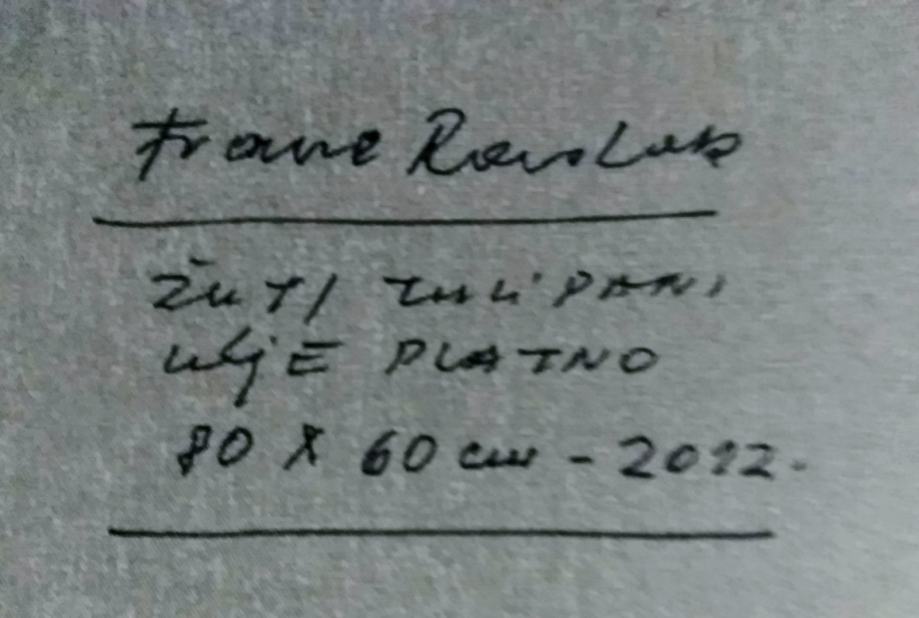 Frane
ŽUTI TULIPANI
ULJE PLATNO
80 X 60 cm - 2012.